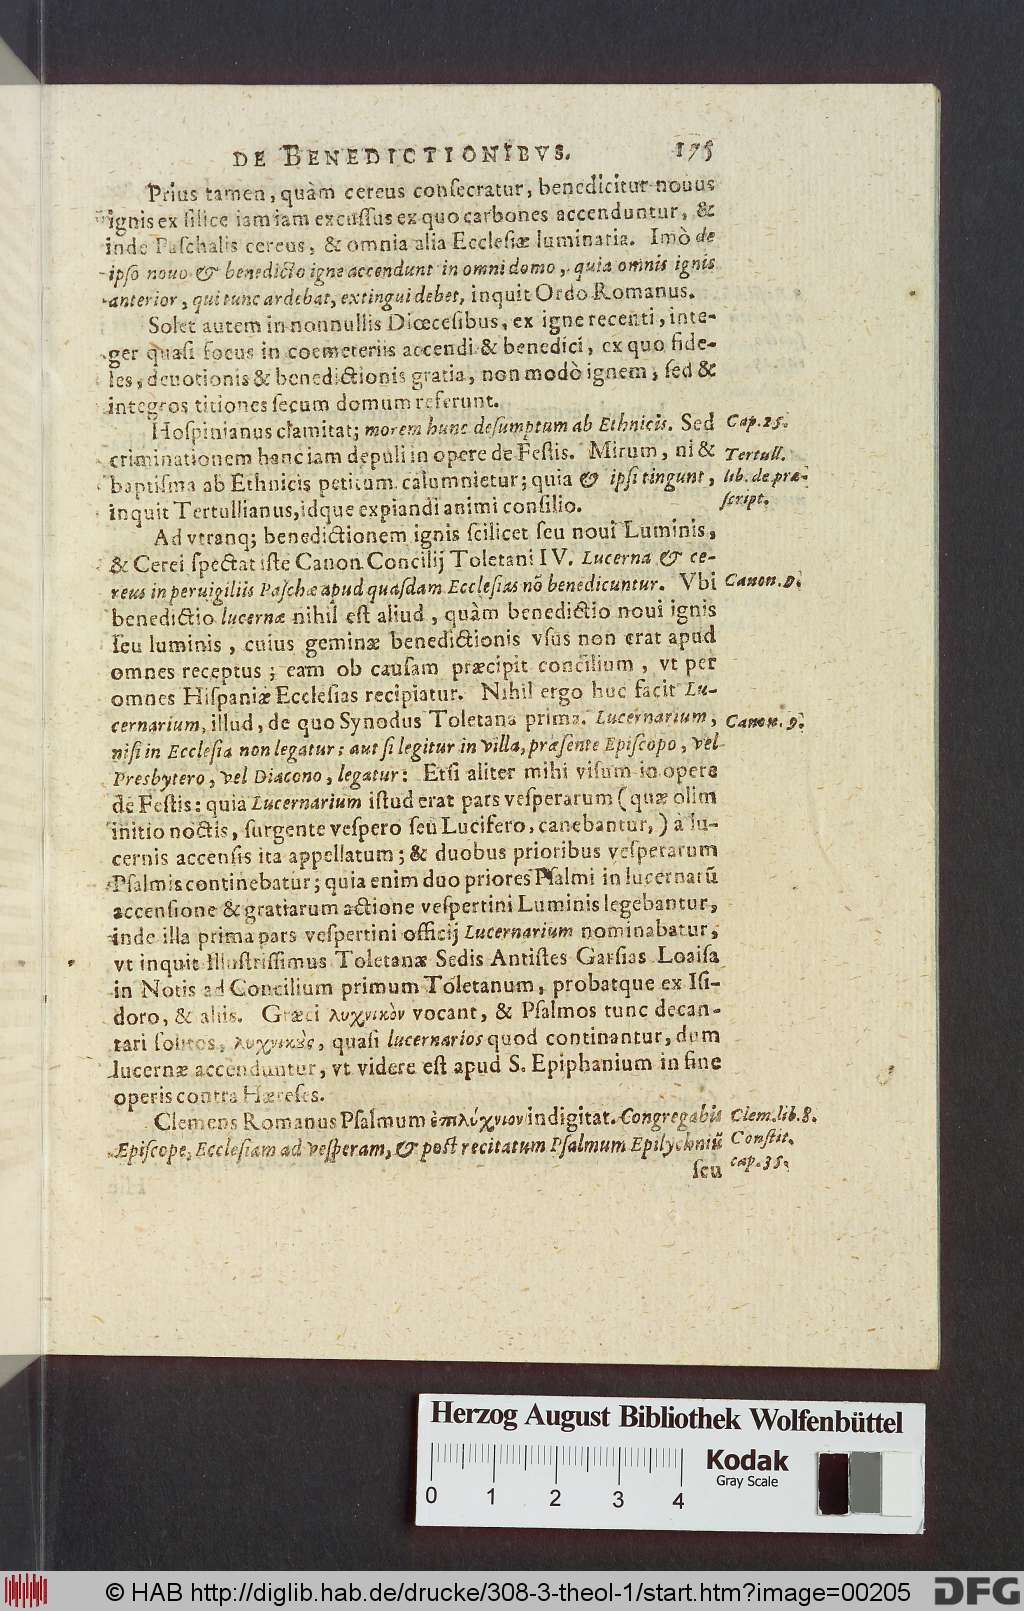 DE BENEDICTIONIBVS. 175
Prius tamen, quàm cereus conſecratur, benedicitur nouus
ignis ex ſilice iamiam excuſſus ex quo carbones accenduntur, &
inde Paſchalis cereus, & omnia alia Eccleſiæ luminaria. Imò de
ipſo nouo & benedicto igne accendunt in omni domo, quia omnis ignis
anterior, qui tunc ardebat, extingui debet, inquit Ordo Romanus.
Solet autem in nonnullis Diœceſibus, ex igne recenti, inte-
ger quaſi focus in coemeteriis accendi & benedici, ex quo fide-
les, deuotionis & benedictionis gratia, non modò ignem, ſed &
integros titiones ſecum domum referunt.
Hoſpinianus clamitat; morem hunc deſumptum ab Ethnicis. Sed
Cap. 25.
criminationem hanc iam depuli in opere de Feſtis. Mirum, ni &
Tertull.
baptiſma ab Ethnicis petitum calumnietur; quia & ipſi tingunt,
lib. de præ-
inquit Tertullianus, idque expiandi animi conſilio.
ſcript.
Ad vtranq; benedictionem ignis ſcilicet ſeu noui Luminis,
& Cerei ſpectat iſte Canon Concilij Toletani IV. Lucerna & ce-
reus in peruigiliis Paſchæ apud quaſdam Eccleſias nō benedicuntur. Vbi
Canon. 9.
benedictio lucernæ nihil eſt aliud, quàm benedictio noui ignis
ſeu luminis, cuius geminæ benedictionis vſus non erat apud
omnes receptus; eam ob cauſam præcipit concilium, vt per
omnes Hiſpaniæ Eccleſias recipiatur. Nihil ergo huc facit Lu-
cernarium, illud, de quo Synodus Toletana prima. Lucernarium,
Canon. 9.
niſi in Eccleſia non legatur: aut ſi legitur in villa, præſente Epiſcopo, vel
Presbytero, vel Diacono, legatur: Etſi aliter mihi viſum in opere
de Feſtis: quia Lucernarium iſtud erat pars veſperarum (quæ olim
initio noctis, ſurgente veſpero ſeu Lucifero, canebantur,) à lu-
cernis accenſis ita appellatum; & duobus prioribus veſperarum
Pſalmis continebatur; quia enim duo priores Pſalmi in lucernarū
accenſione & gratiarum actione veſpertini Luminis legebantur,
inde illa prima pars veſpertini officij Lucernarium nominabatur,
vt inquit Illuſtriſſimus Toletanæ Sedis Antiſtes Garſias Loaiſa
in Notis ad Concilium primum Toletanum, probatque ex Iſi-
doro, & aliis. Græci λυχνικὸν vocant, & Pſalmos tunc decan-
tari ſolitos, λυχνικὲς, quaſi lucernarios quod continantur, dum
lucernæ accenduntur, vt videre eſt apud S. Epiphanium in fine
operis contra Hæreſes.
Clemens Romanus Pſalmum ἐπιλύχνιον indigitat. Congregabis
Clem. lib. 8.
Epiſcope, Eccleſiam ad veſperam, & poſt recitatum Pſalmum Epilychniū
Conſtit.
cap. 35.
ſeu
Herzog August Bibliothek Wolfenbüttel
Kodak
Gray Scale
0 1 2 3 4
© HAB http://diglib.hab.de/drucke/308-3-theol-1/start.htm?image=00205
DFG